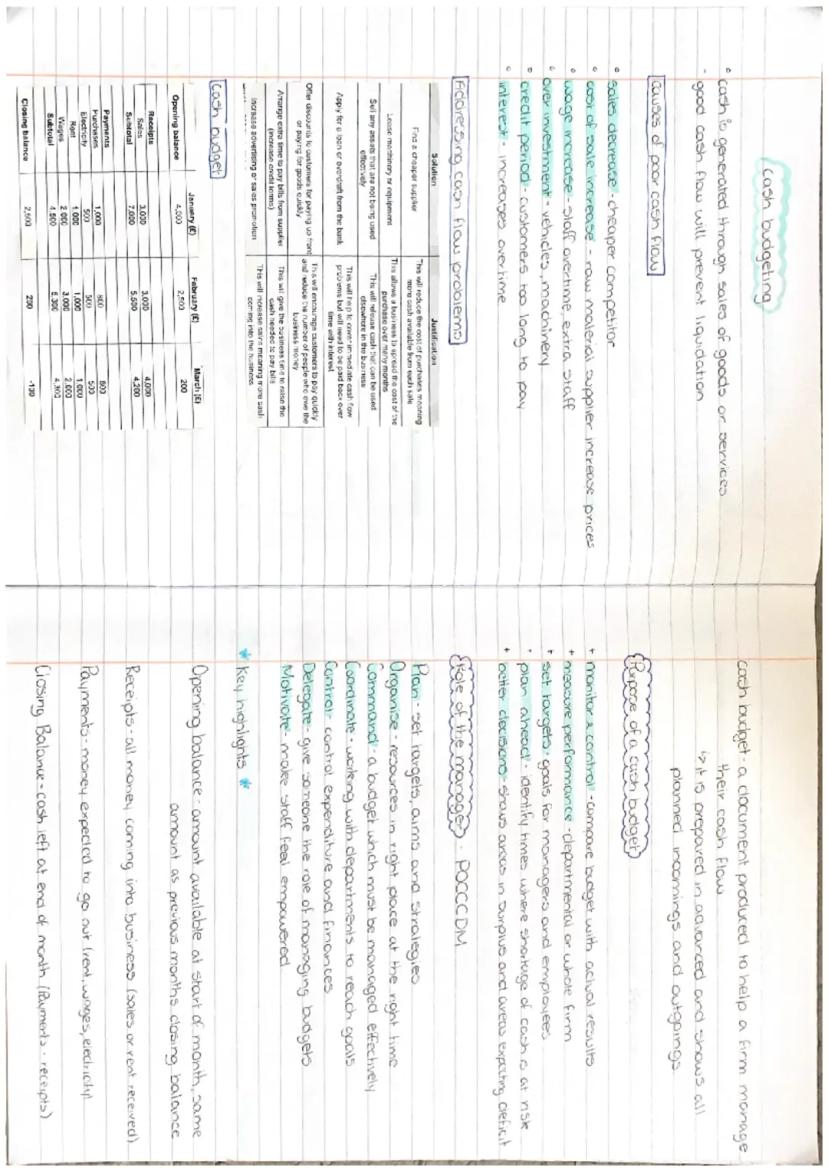 Cash budgeting
cash is generated through sales of goods or services
- good cash flow will prevent liquidation
Causes of poor cash flow
sales decrease - cheaper competitor
cost of sale increase - raw material supplier increase prices
wage increase - staff overtime, extra staff
over investment - vehicles, machinery
credit period - customers too long to pay
interest - increases overtime
Addressing cash flow problems
Solution Justification
Find a cheaper supplier This will reduce the cost of purchases meaning
more cash available from each sale
Lease machinery or equipment This allows a business to spread the cost of the
purchase over many months
Sell any assets that are not being used This will release cash that can be used
effectively elsewhere in the business
Apply for a loan or overdraft from the bank This will help to cover immediate cash flow
problems but will need to be paid back over
time with interest
Offer discounts to customers for paying up front This will encourage customers to pay quickly
or paying for goods quickly and reduce the number of people who owe the
business money
Arrange extra time to pay bills from supplier This will give the business time to raise the
(increase credit terms) cash needed to pay bills
Increase advertising or sales promotion This will increase sales meaning more cash
coming into the business
Cash budget
January (£) February (£) March (£)
Opening balance 4,000 2,500 200
Receipts
Sales 3,000 3,000 4,000
Subtotal 7,000 5,500 4,200
Payments
Purchases 1,000 800 800
Electricity 500 500 500
Rent 1,000 1,000 1,000
Wages 2,000 3,000 2,000
Subtotal 4,500 5,300 4,300
Closing balance 2,500 200 -100
cash budget - a document produced to help a firm manage
their cash flow
↳ it is prepared in advanced and shows all
planned incomings and outgoings
Purpose of a cash budget
+ monitor & control - compare budget with actual results
+ measure performance - departmental or whole firm
+ set targets - goals for managers and employees
+ plan ahead - identify times where shortage of cash is at risk
+ better decisions - shows areas in surplus and areas expecting deficit
Role of the manager - POCCCDM
Plan - set targets, aims and strategies
Organise - resources in right place at the right time
Command - a budget which must be managed effectively
Coordinate - working with departments to reach goals
Control - control expenditure and finances
Delegate - give someone the role of managing budgets
Motivate - make staff feel empowered
* Key highlights *
Opening balance - amount available at start of month, same
amount as previous months closing balance
Receipts - all money coming into business (sales or rent received)
Payments - money expected to go out (rent, wages, electricity)
Closing Balance - cash left at end of month (Payments - receipts)